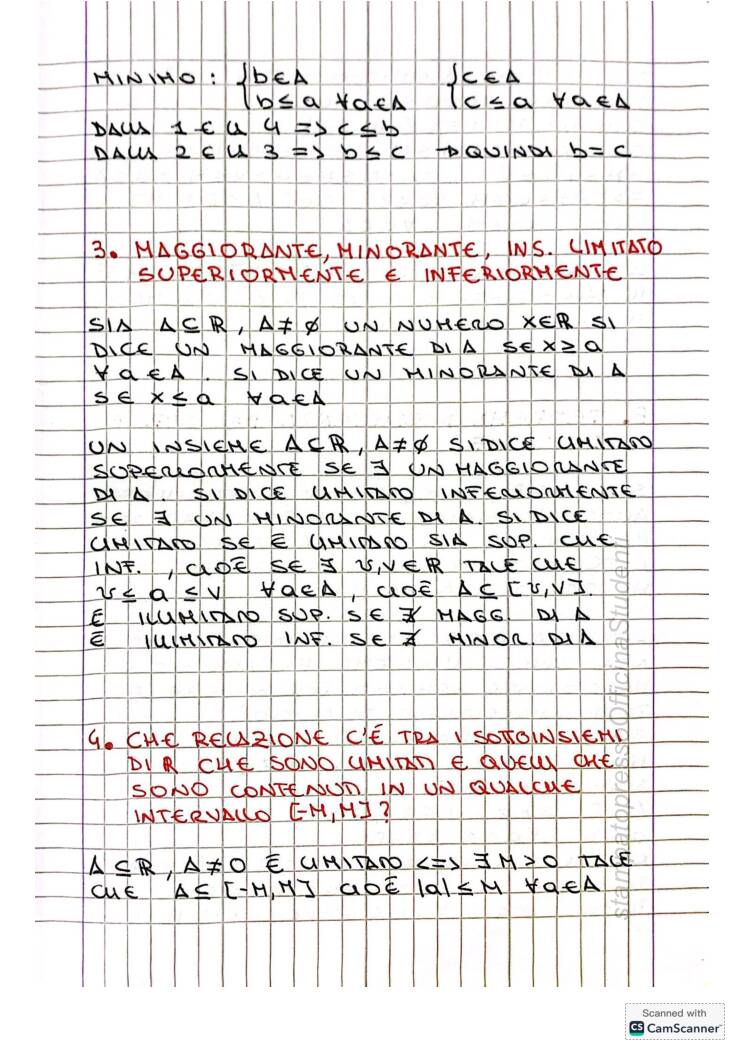 MINIMO : { b∈A { c∈A
b≤a ∀a∈A c≤a ∀a∈A
DALLA 1 E LA 4 => c≤b
DALLA 2 E LA 3 => b≤c → QUINDI b=c
3. MAGGIORANTE, MINORANTE, INS. LIMITATO
SUPERIORMENTE E INFERIORMENTE
SIA A⊆R, A≠∅ UN NUMERO X∈R SI
DICE UN MAGGIORANTE DI A SE X≥a
∀a∈A. SI DICE UN MINORANTE DI A
SE X≤a ∀a∈A
UN INSIEME A⊆R, A≠∅ SI DICE LIMITATO
SUPERIORMENTE SE ∃ UN MAGGIORANTE
DI A. SI DICE LIMITATO INFERIORMENTE
SE ∃ UN MINORANTE DI A. SI DICE
LIMITATO SE È LIMITATO SIA SUP. CHE
INF., CIOÈ SE ∃ U,V∈R TALE CHE
U≤a≤V ∀a∈A, CIOÈ A⊆[U,V].
È ILLIMITATO SUP. SE ∄ MAGG. DI A
È ILLIMITATO INF. SE ∄ MINOR. DI A
4. CHE RELAZIONE C'È TRA I SOTTOINSIEMI
DI R CHE SONO LIMITATI E QUELLI CHE
SONO CONTENUTI IN UN QUALCHE
INTERVALLO [-M,M]?
A⊆R, A≠0 È LIMITATO <=> ∃M>0 TALE
CHE A⊆[-M,M] CIOÈ |a|≤M ∀a∈A
Scanned with
CS CamScanner